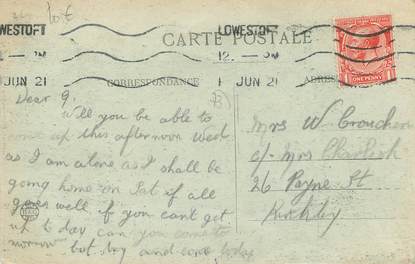 LOWESTOFT
WESTOFT
CARTE POSTALE
12.
JUN 21
JUN 21
CORRESPONDANCE
ADRES
ONE PENNY
Dear G.
Will you be able to
come up this afternoon Wed
as I am alone as I shall be
going home on Sat if all
goes well if you cant get
up to day can you come to
morrow but try and come today
Mrs W Crouchen
c/- Mrs
26 Payne St
Kirkley